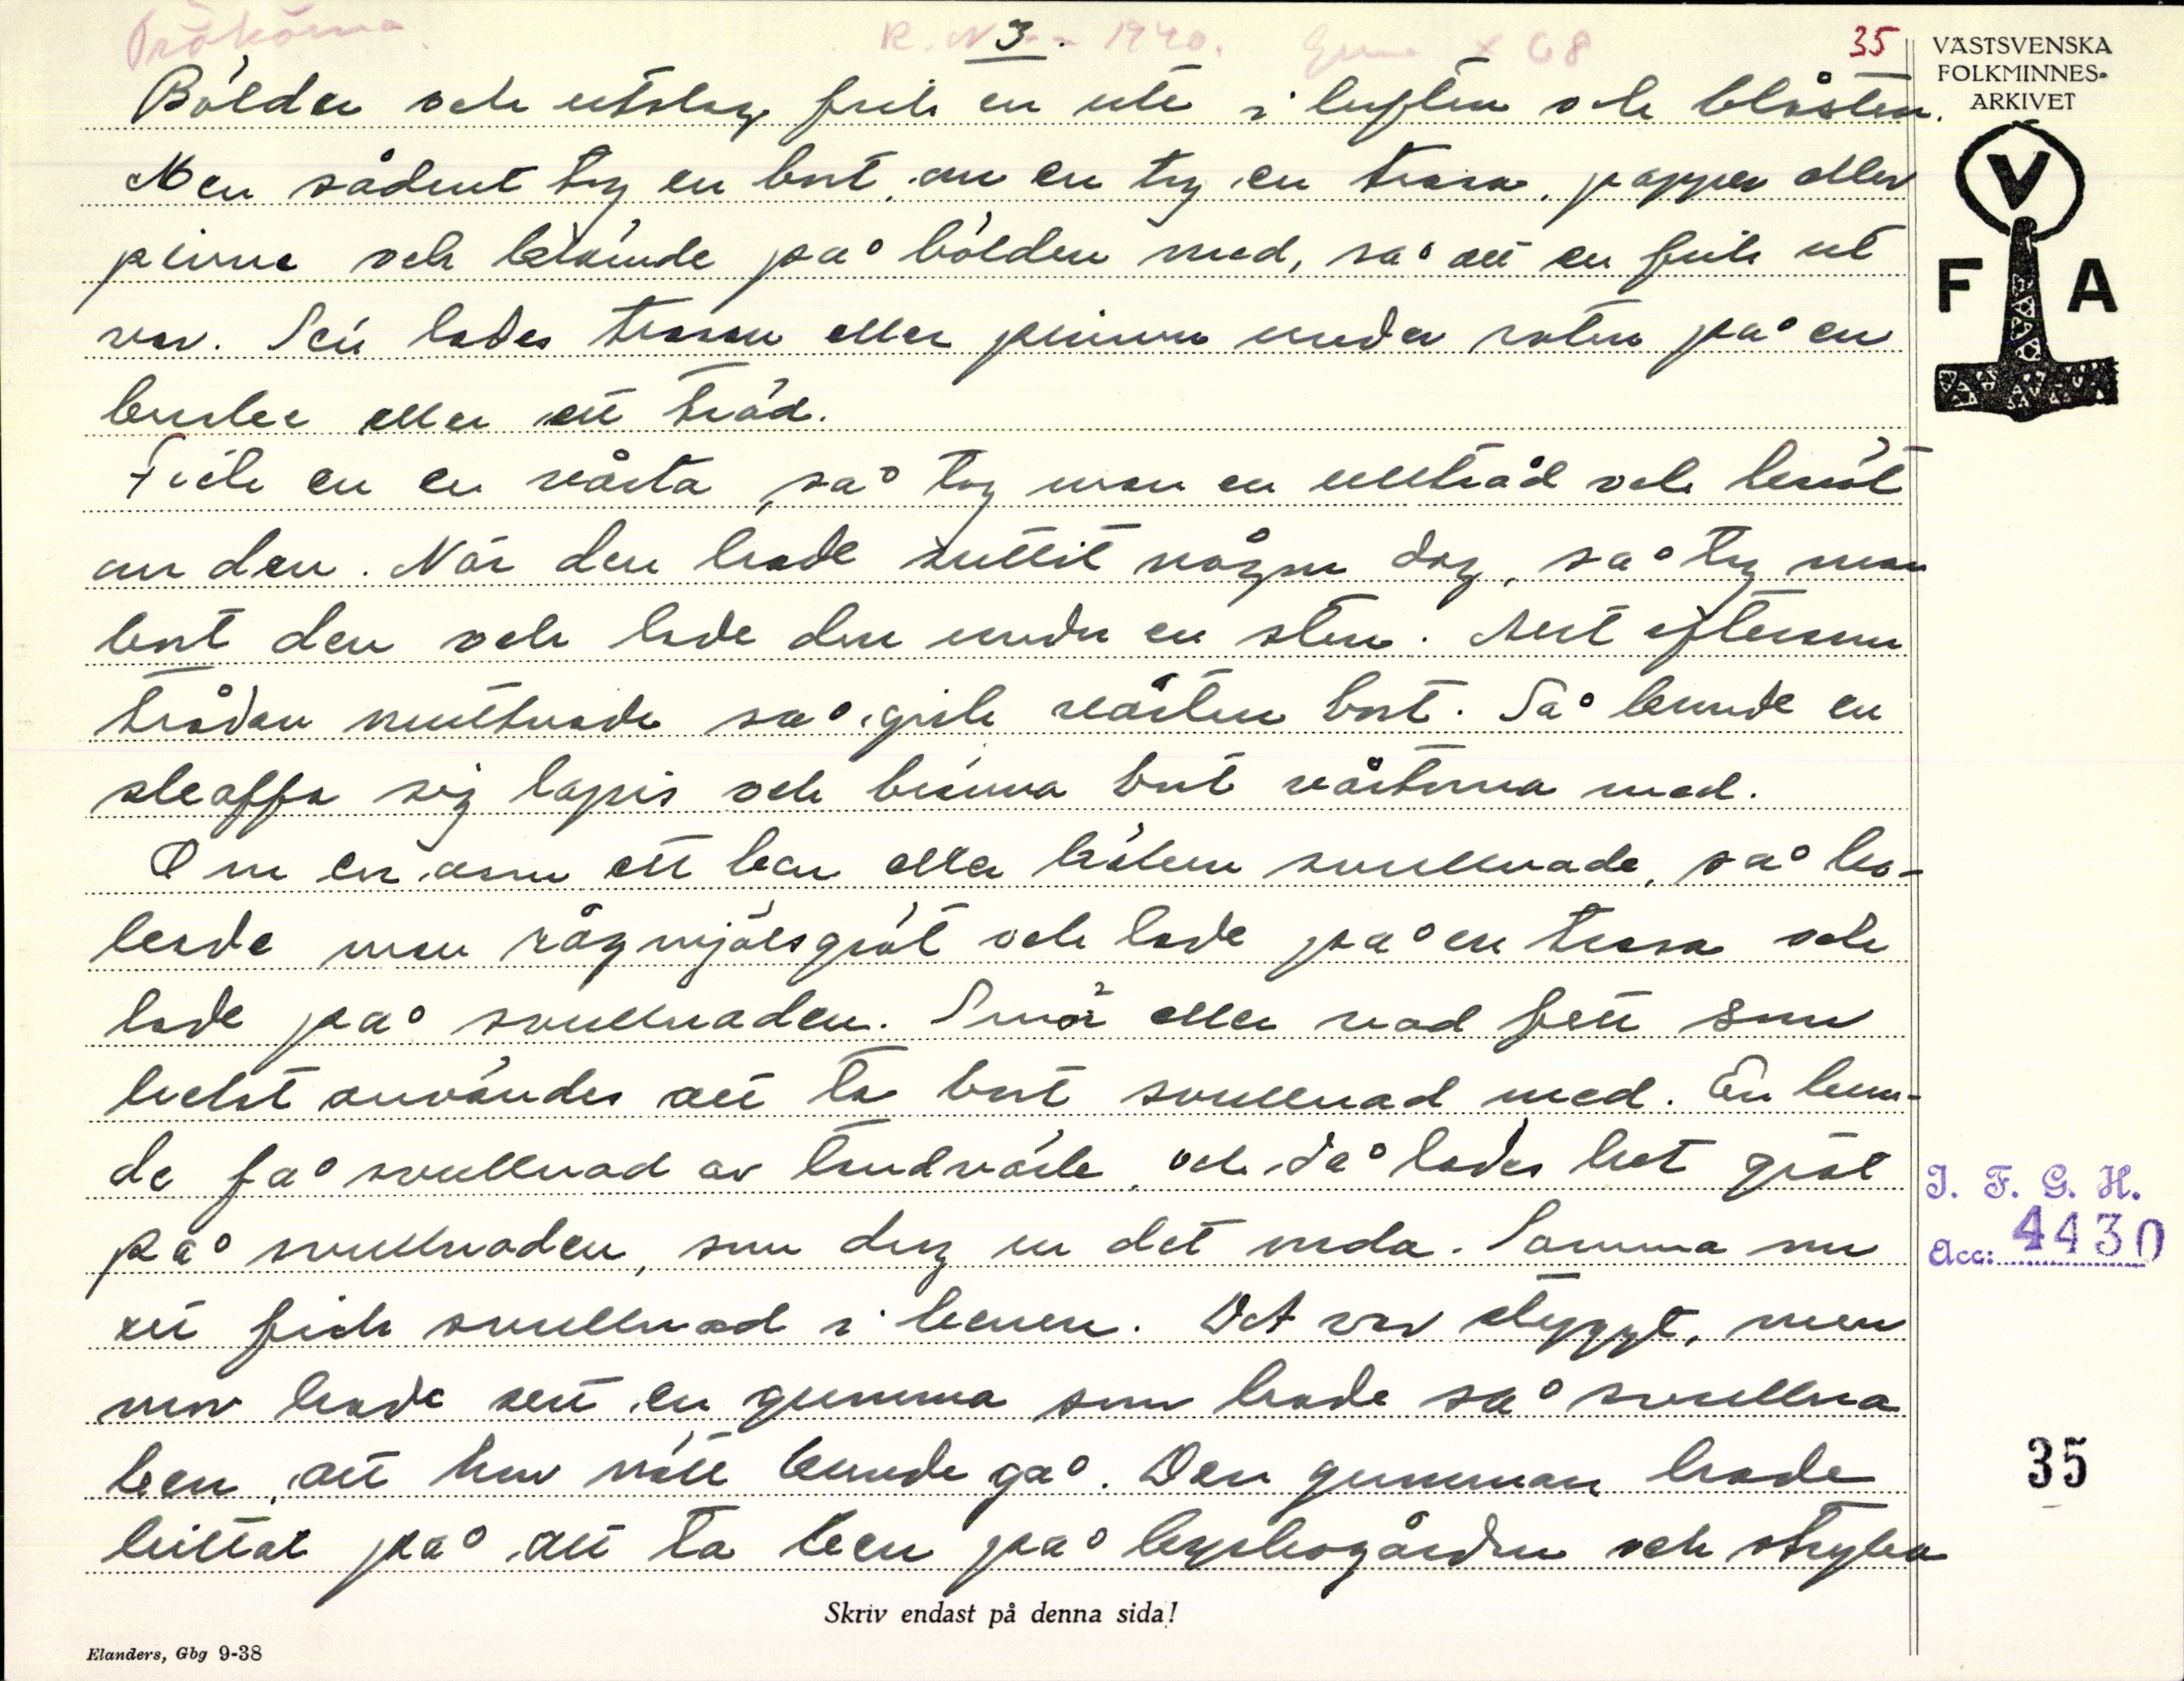 3.
35
VÄSTSVENSKA
FOLKMINNES-
ARKIVET
V
F A
Bölder och utslag fick en ute i luften och blåsten.
Men sådant tog en bort, om en tog en trasa, papper eller
pinne och kände på bölden med, så att en fick ut
var. Sen lades trasan eller pinnen under roten på en
buske eller ett träd.
Fick en en vårta, så tog man en ulltråd och knöt
om den. När den hade suttit någon dag, så tog man
bort den och lade den under en sten. Allt eftersom
tråden ruttnade så gick vårtan bort. Så kunde en
skaffa sig lapis och bränna bort vårtorna med.
Om en arm ett ben eller läken svullnade, så ko-
kade man rågmjölsgröt och lade på en trasa och
lade på svullnaden. Smör eller vad fett som
helst användes att ta bort svullnad med. En kun-
de få svullnad av tandvärk, och då lades het gröt
på svullnaden, som dog en det onda. Samma om
ett fick svullnad i benen. Det var styggt, men
mor hade sett en gumma som hade så svullna
ben, att hon nätt kunde gå. Den gumman hade
hittat på att ta ben på kyrkogården och stryka
Skriv endast på denna sida!
Elanders, Gbg 9-38
I. F. G. H.
Acc: 4430
35